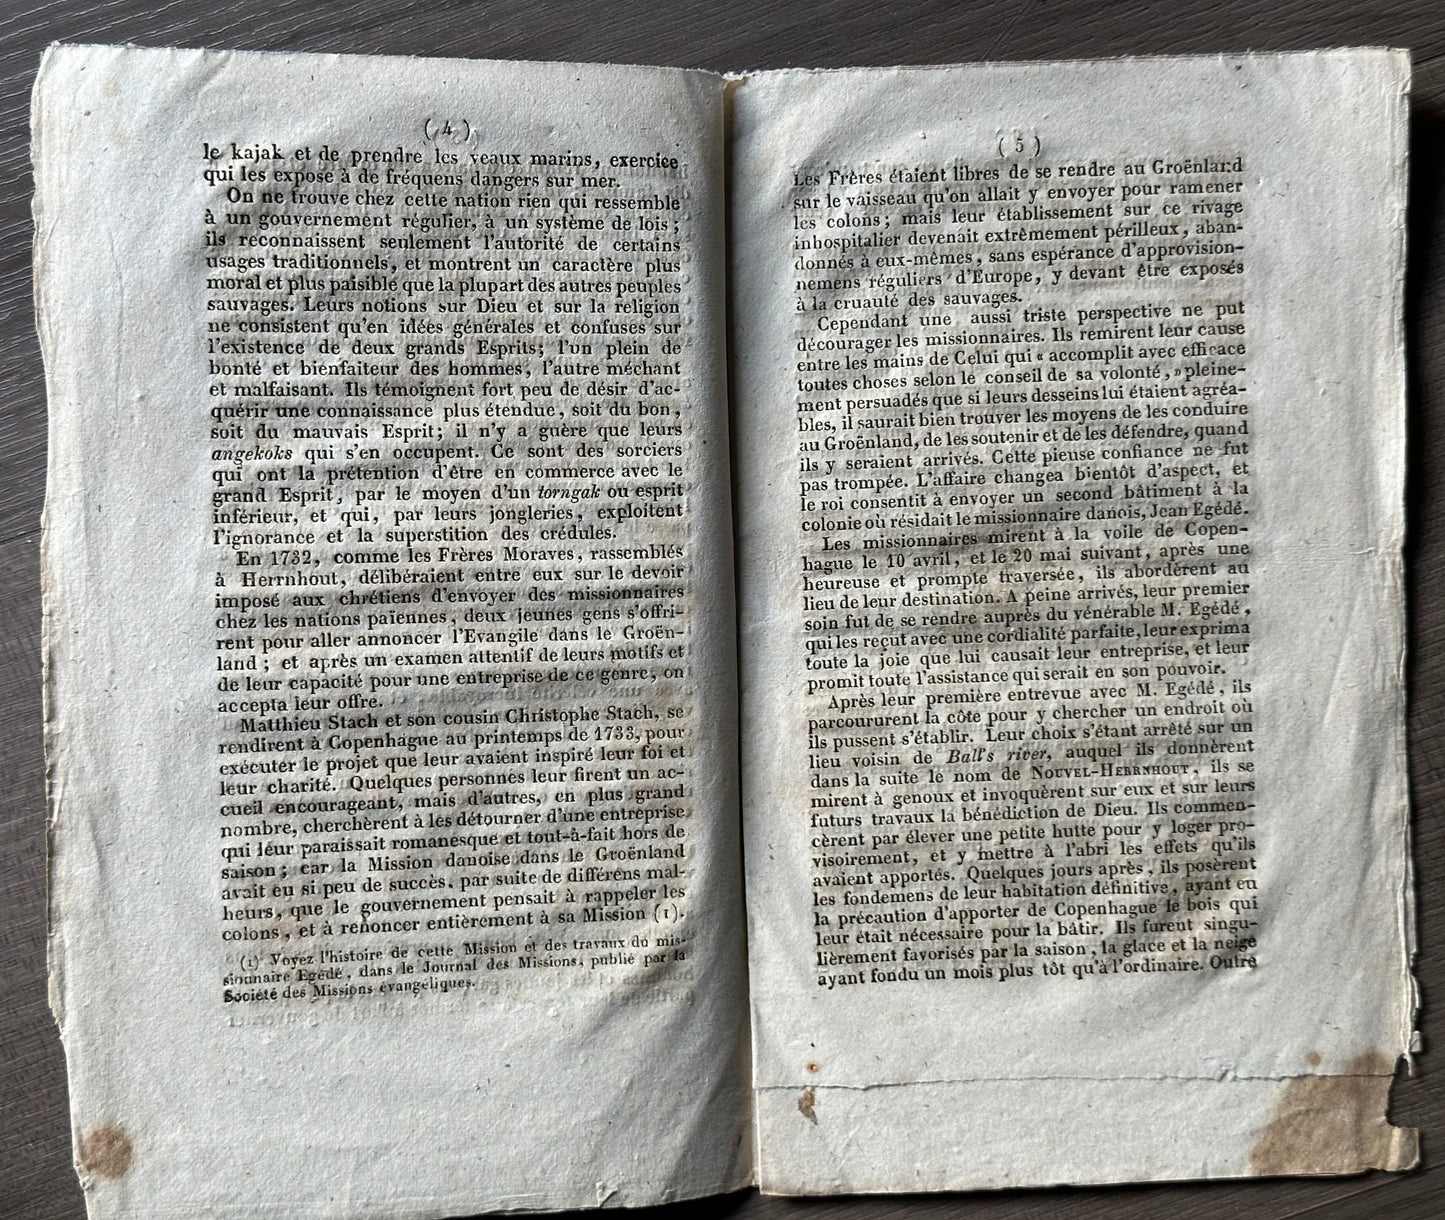 ( 4 )
le kajak et de prendre les veaux marins, exercice
qui les expose à de fréquens dangers sur mer.
On ne trouve chez cette nation rien qui ressemble
à un gouvernement régulier, à un système de lois;
ils reconnaissent seulement l'autorité de certains
usages traditionnels, et montrent un caractère plus
moral et plus paisible que la plupart des autres peuples
sauvages. Leurs notions sur Dieu et sur la religion
ne consistent qu'en idées générales et confuses sur
l'existence de deux grands Esprits; l'un plein de
bonté et bienfaiteur des hommes, l'autre méchant
et malfaisant. Ils témoignent fort peu de désir d'ac-
quérir une connaissance plus étendue, soit du bon,
soit du mauvais Esprit; il n'y a guère que leurs
angekoks qui s'en occupent. Ce sont des sorciers
qui ont la prétention d'être en commerce avec le
grand Esprit, par le moyen d'un torngak ou esprit
inférieur, et qui, par leurs jongleries, exploitent
l'ignorance et la superstition des crédules.
En 1732, comme les Frères Moraves, rassemblés
à Herrnhout, délibéraient entre eux sur le devoir
imposé aux chrétiens d'envoyer des missionnaires
chez les nations païennes, deux jeunes gens s'offri-
rent pour aller annoncer l'Evangile dans le Groën-
land; et après un examen attentif de leurs motifs et
de leur capacité pour une entreprise de ce genre, on
accepta leur offre.
Matthieu Stach et son cousin Christophe Stach, se
rendirent à Copenhague au printemps de 1733, pour
exécuter le projet que leur avaient inspiré leur foi et
leur charité. Quelques personnes leur firent un ac-
cueil encourageant, mais d'autres, en plus grand
nombre, cherchèrent à les détourner d'une entreprise
qui leur paraissait romanesque et tout-à-fait hors de
saison; car la Mission danoise dans le Groënland
avait eu si peu de succès, par suite de différens mal-
heurs, que le gouvernement pensait à rappeler les
colons, et à renoncer entièrement à sa Mission (1).
(1) Voyez l'histoire de cette Mission et des travaux du mis-
sionnaire Egédé, dans le Journal des Missions, publié par la
Société des Missions évangéliques.
( 5 )
Les Frères étaient libres de se rendre au Groënland
sur le vaisseau qu'on allait y envoyer pour ramener
les colons; mais leur établissement sur ce rivage
inhospitalier devenait extrêmement périlleux, aban-
donnés à eux-mêmes, sans espérance d'approvision-
nemens réguliers d'Europe, y devant être exposés
à la cruauté des sauvages.
Cependant une aussi triste perspective ne put
décourager les missionnaires. Ils remirent leur cause
entre les mains de Celui qui « accomplit avec efficace
toutes choses selon le conseil de sa volonté, » pleine-
ment persuadés que si leurs desseins lui étaient agréa-
bles, il saurait bien trouver les moyens de les conduire
au Groënland, de les soutenir et de les défendre, quand
ils y seraient arrivés. Cette pieuse confiance ne fut
pas trompée. L'affaire changea bientôt d'aspect, et
le roi consentit à envoyer un second bâtiment à la
colonie où résidait le missionnaire danois, Jean Egédé.
Les missionnaires mirent à la voile de Copen-
hague le 10 avril, et le 20 mai suivant, après une
heureuse et prompte traversée, ils abordèrent au
lieu de leur destination. A peine arrivés, leur premier
soin fut de se rendre auprès du vénérable M. Egédé,
qui les reçut avec une cordialité parfaite, leur exprima
toute la joie que lui causait leur entreprise, et leur
promit toute l'assistance qui serait en son pouvoir.
Après leur première entrevue avec M. Egédé, ils
parcoururent la côte pour y chercher un endroit où
ils pussent s'établir. Leur choix s'étant arrêté sur un
lieu voisin de Ball's river, auquel ils donnèrent
dans la suite le nom de NOUVEL-HERRNHOUT, ils se
mirent à genoux et invoquèrent sur eux et sur leurs
futurs travaux la bénédiction de Dieu. Ils commen-
cèrent par élever une petite hutte pour y loger pro-
visoirement, et y mettre à l'abri les effets qu'ils
avaient apportés. Quelques jours après, ils posèrent
les fondemens de leur habitation définitive, ayant eu
la précaution d'apporter de Copenhague le bois qui
leur était nécessaire pour la bâtir. Ils furent singu-
lièrement favorisés par la saison, la glace et la neige
ayant fondu un mois plus tôt qu'à l'ordinaire. Outre